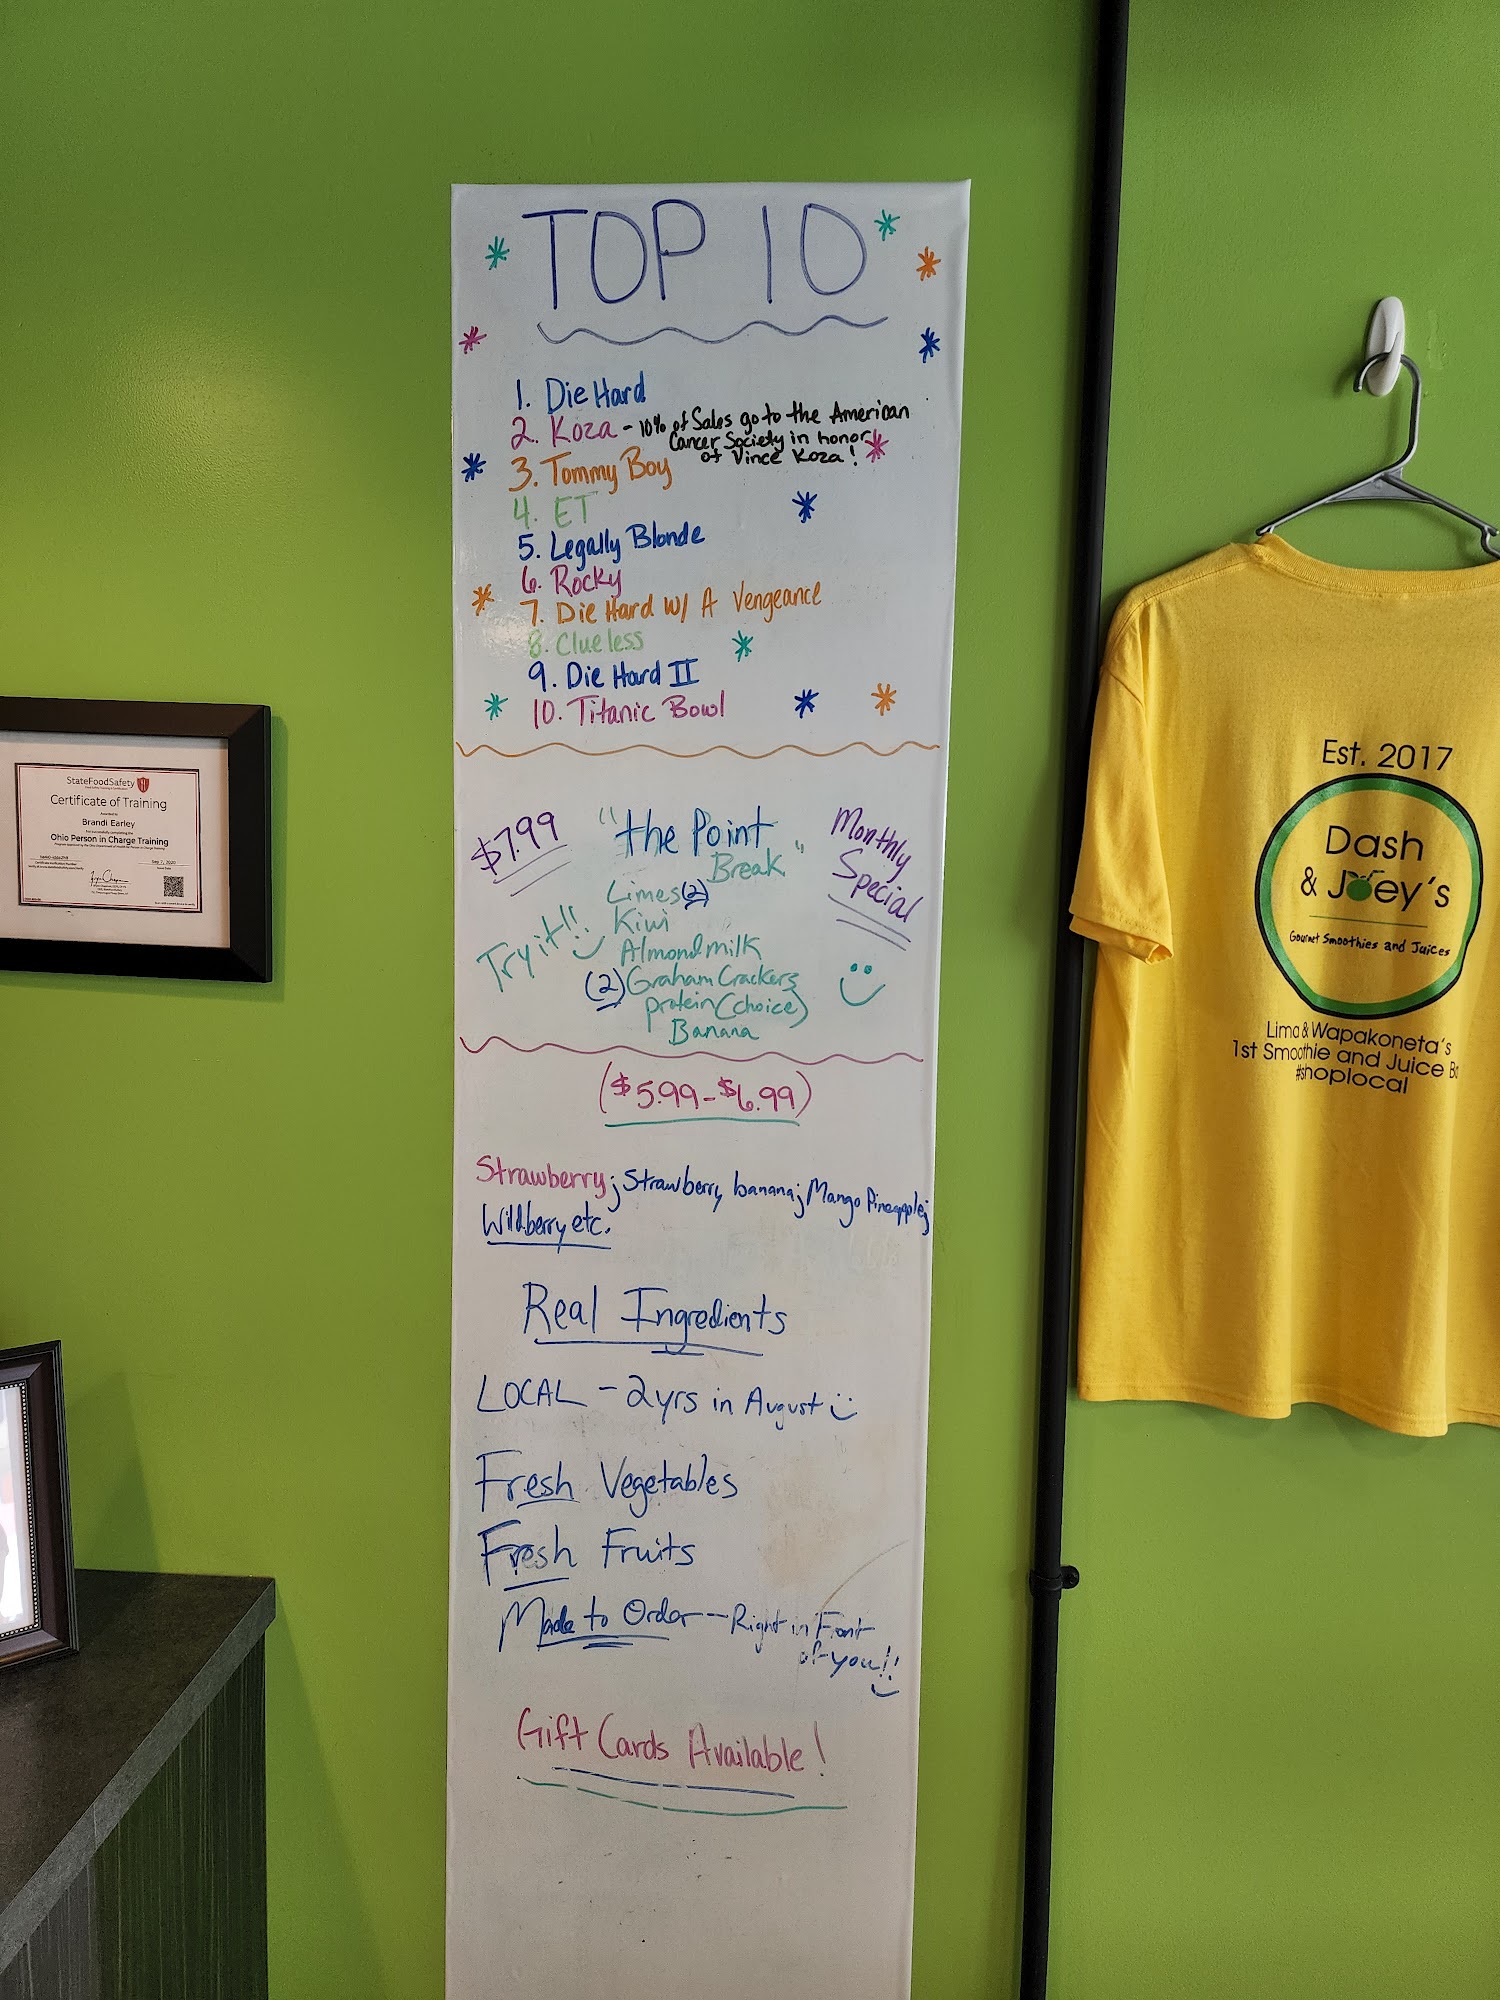 TOP 10
1. Die Hard
2. Koza - 10% of Sales go to the American
Cancer Society in honor
of Vince Koza!
3. Tommy Boy
4. ET
5. Legally Blonde
6. Rocky
7. Die Hard w/ A Vengeance
8. Clueless
9. Die Hard II
10. Titanic Bowl
$7.99
"the Point
Break"
Monthly
Special
Try it!!
Limes (2)
Kiwi
Almondmilk
(2) Graham Crackers
protein (choice)
Banana
($5.99-$6.99)
Strawberry; Strawberry banana; Mango Pineapple;
Wildberry etc.
Real Ingredients
LOCAL - 2yrs in August
Fresh Vegetables
Fresh Fruits
Made to Order - Right in Front
of you!!
Gift Cards Available!
StateFoodSafety
Certificate of Training
Awarded to
Brandi Earley
For successfully completing the
Ohio Person in Charge Training
Sep 7, 2020
Est. 2017
Dash
& Joey's
Gourmet Smoothies and Juices
Lima & Wapakoneta's
1st Smoothie and Juice B
#shoplocal